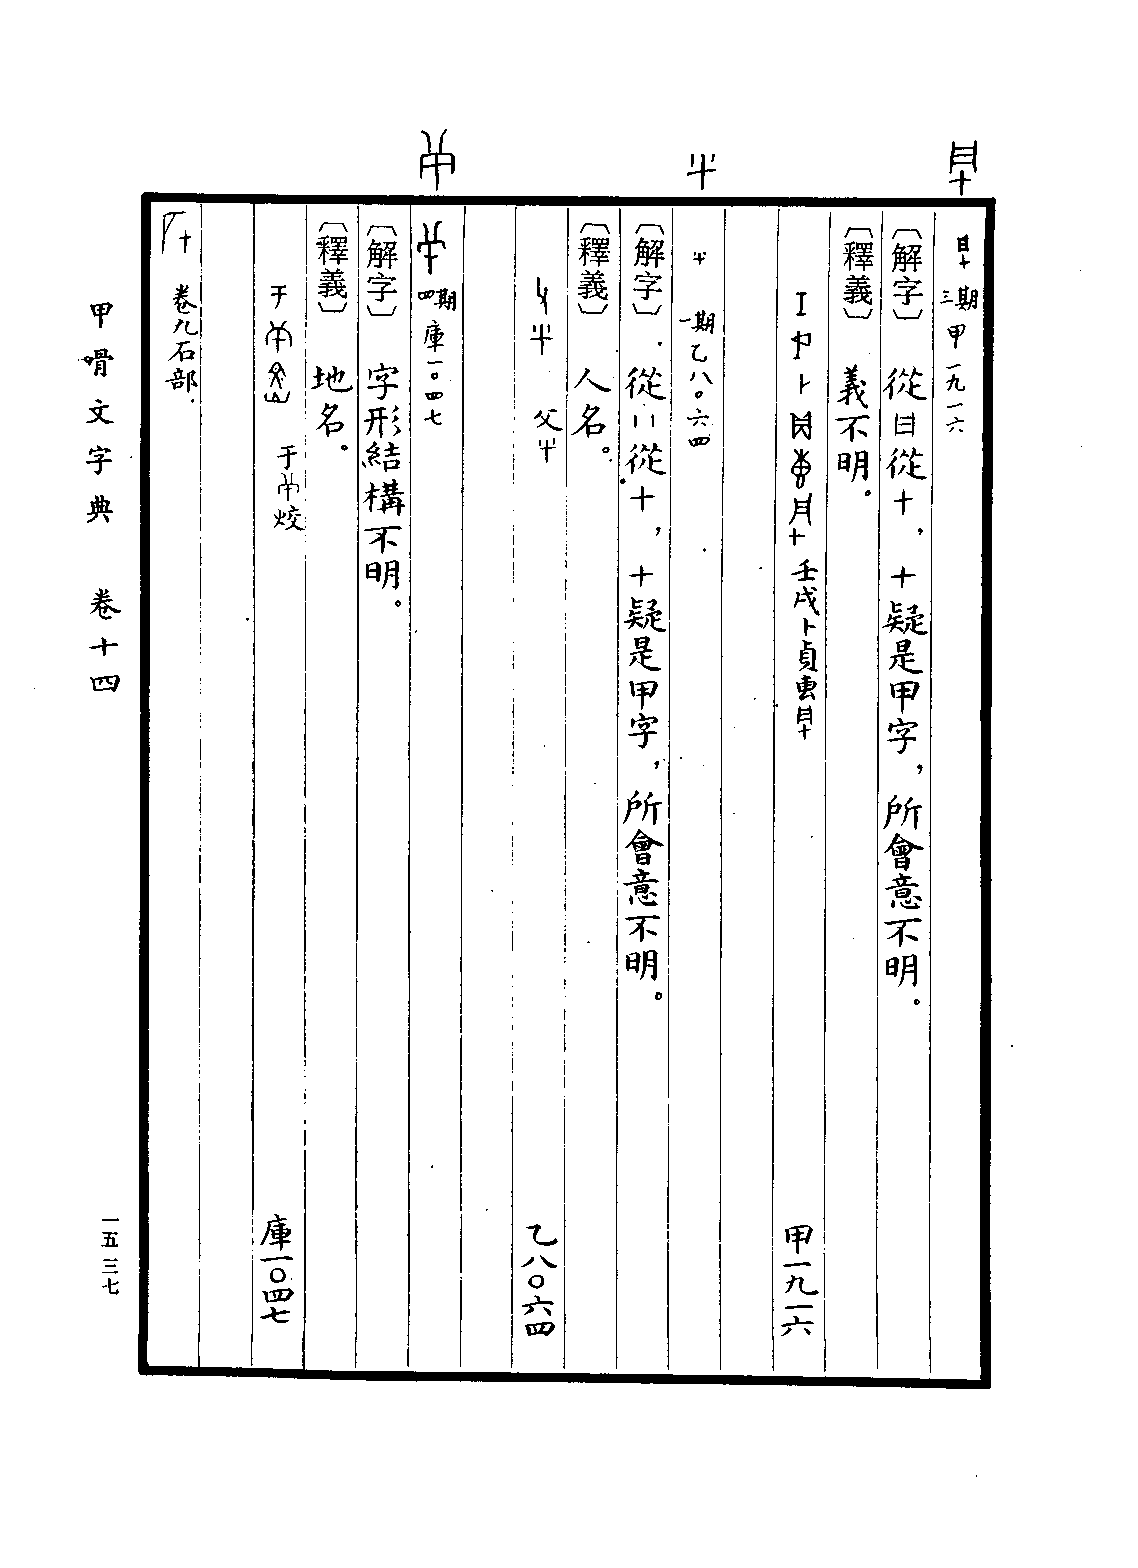 三期 甲一九一六
〔解字〕 從日從十，十疑是甲字，所會意不明。
〔釋義〕 義不明。
壬戌卜貞叀 甲一九一六
一期 乙八〇六四
〔解字〕 從八從十，十疑是甲字，所會意不明。
〔釋義〕 人名。
父 乙八〇六四
四期 庫一〇四七
〔解字〕 字形結構不明。
〔釋義〕 地名。
于 烄 庫一〇四七
卷九石部.
甲骨文字典 卷十四
一五三七